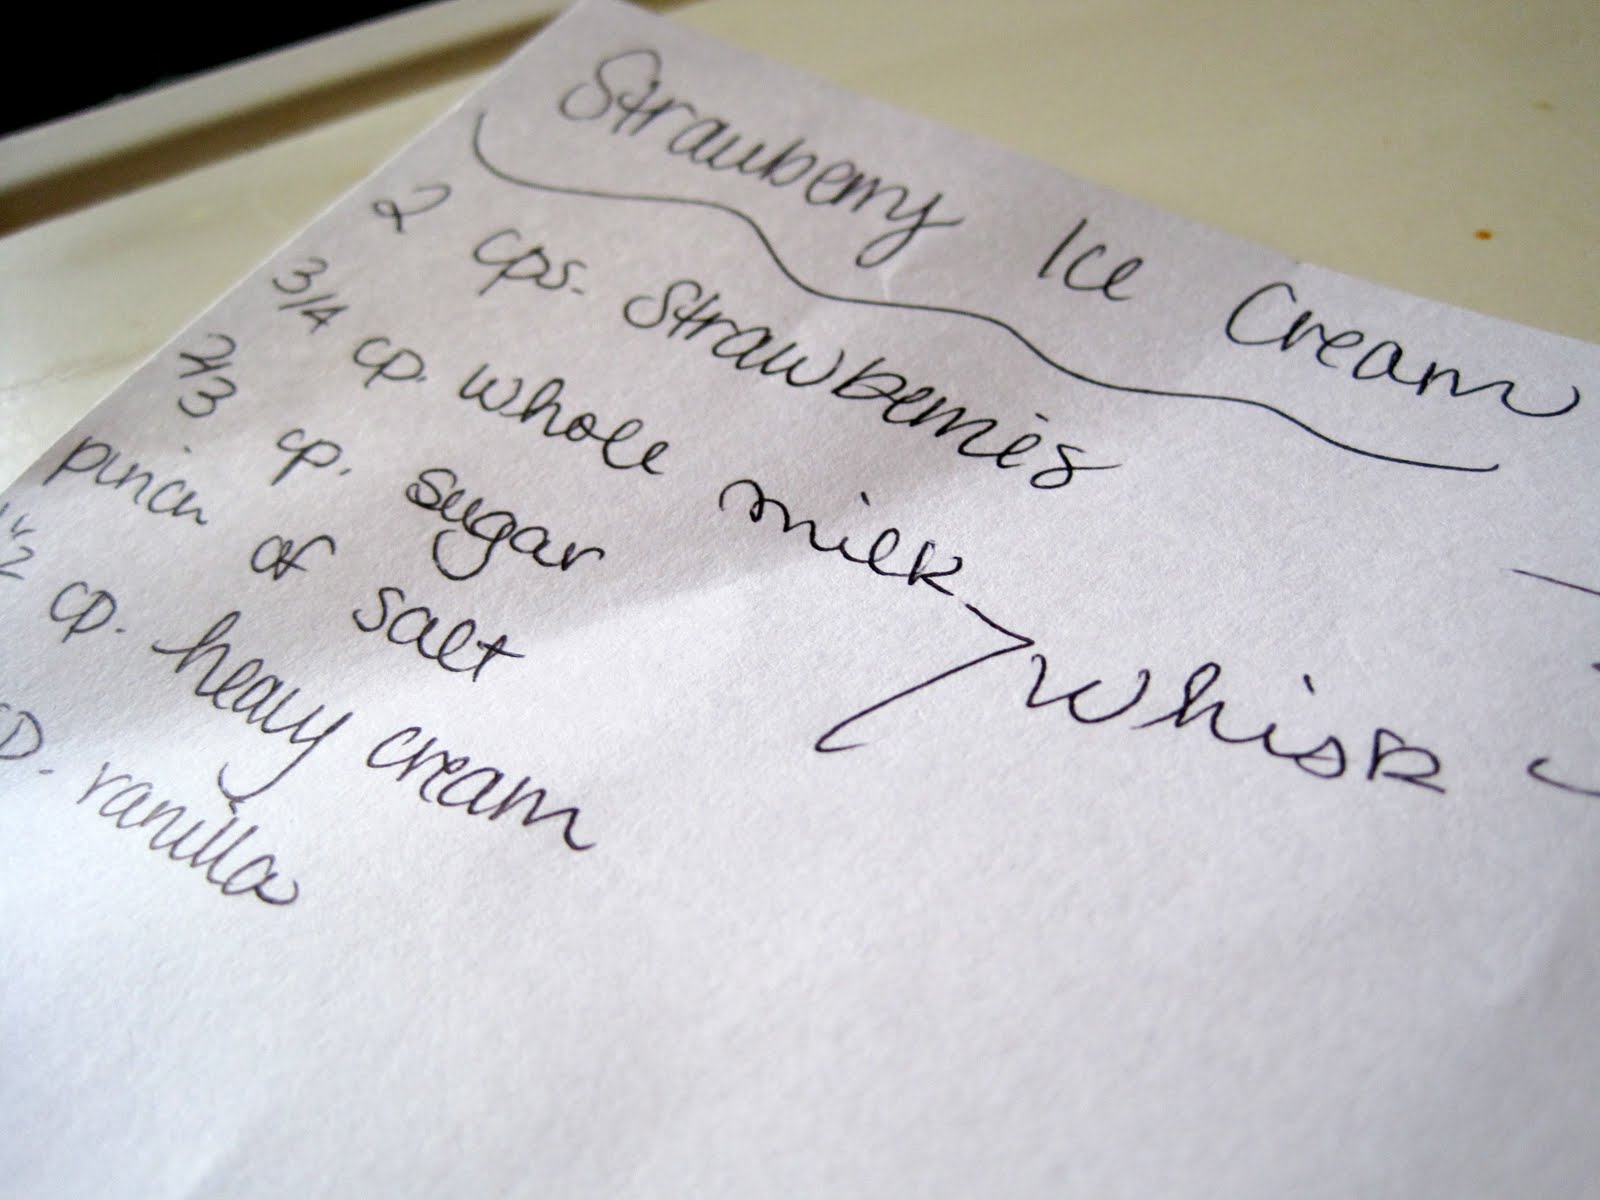 Strawberry Ice Cream
2 cps. Strawberries
3/4 cp. whole milk
2/3 cp. sugar
Whisk
pinch of salt
cp. heavy cream
vanilla